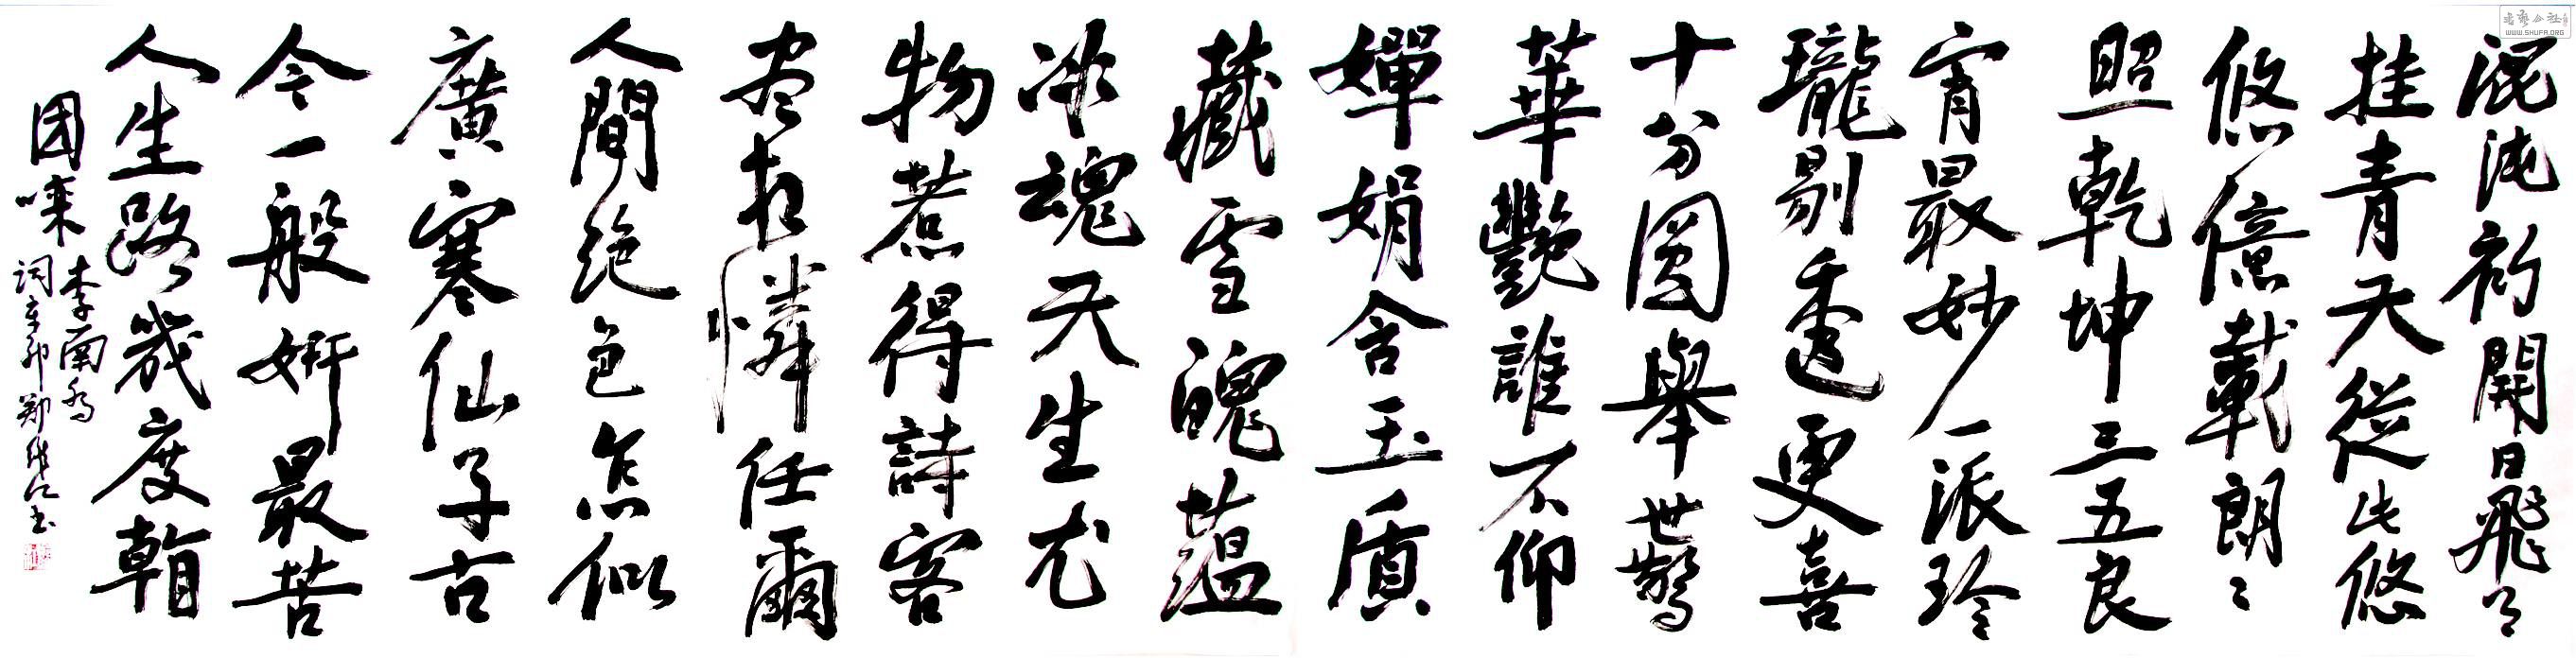 混沌初開日飛
挂青天從此悠
悠億載朗〻
照乾坤三五良
宵最妙一派玲
瓏剔透更喜
十分圓舉世驚
華艷誰不仰
嬋娟含玉質
藏雪魄蘊
冰魂天生尤
物惹得詩客
盡相憐任爾
人間絶色怎似
廣寒仙子古
今一般妍最苦
人生路幾度
团
李南
詞辛卯鄭書
WWW.SHUFA.ORG